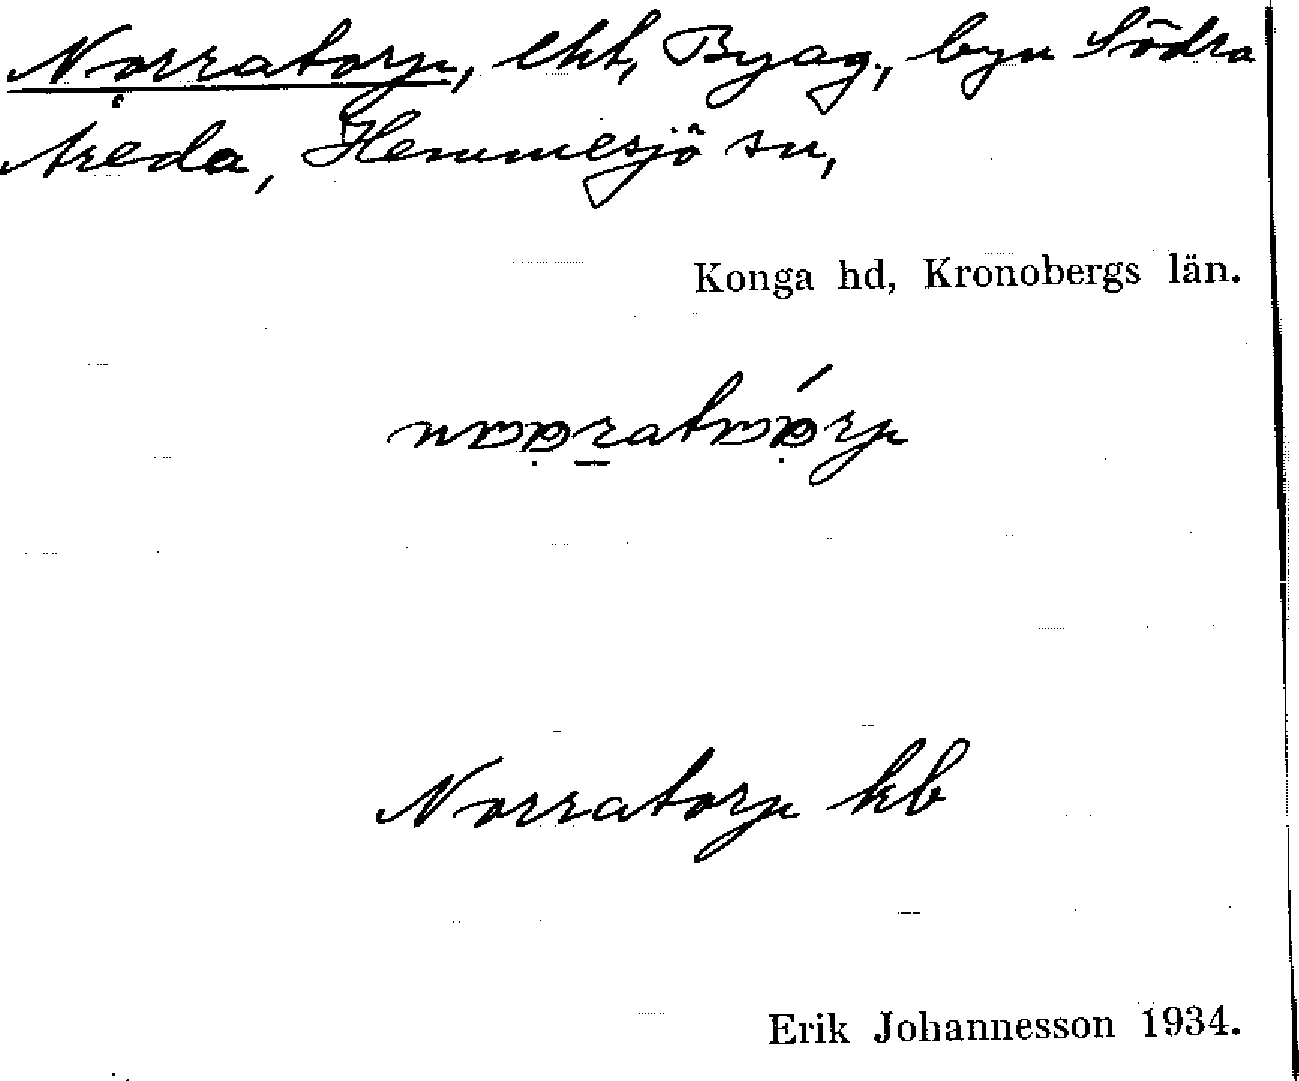 Norratorp, ekt, Byag., byn Södra
Areda, Hemmesjö sn,
Konga hd, Kronobergs län.
Norratorp kb
Erik Johannesson 1934.